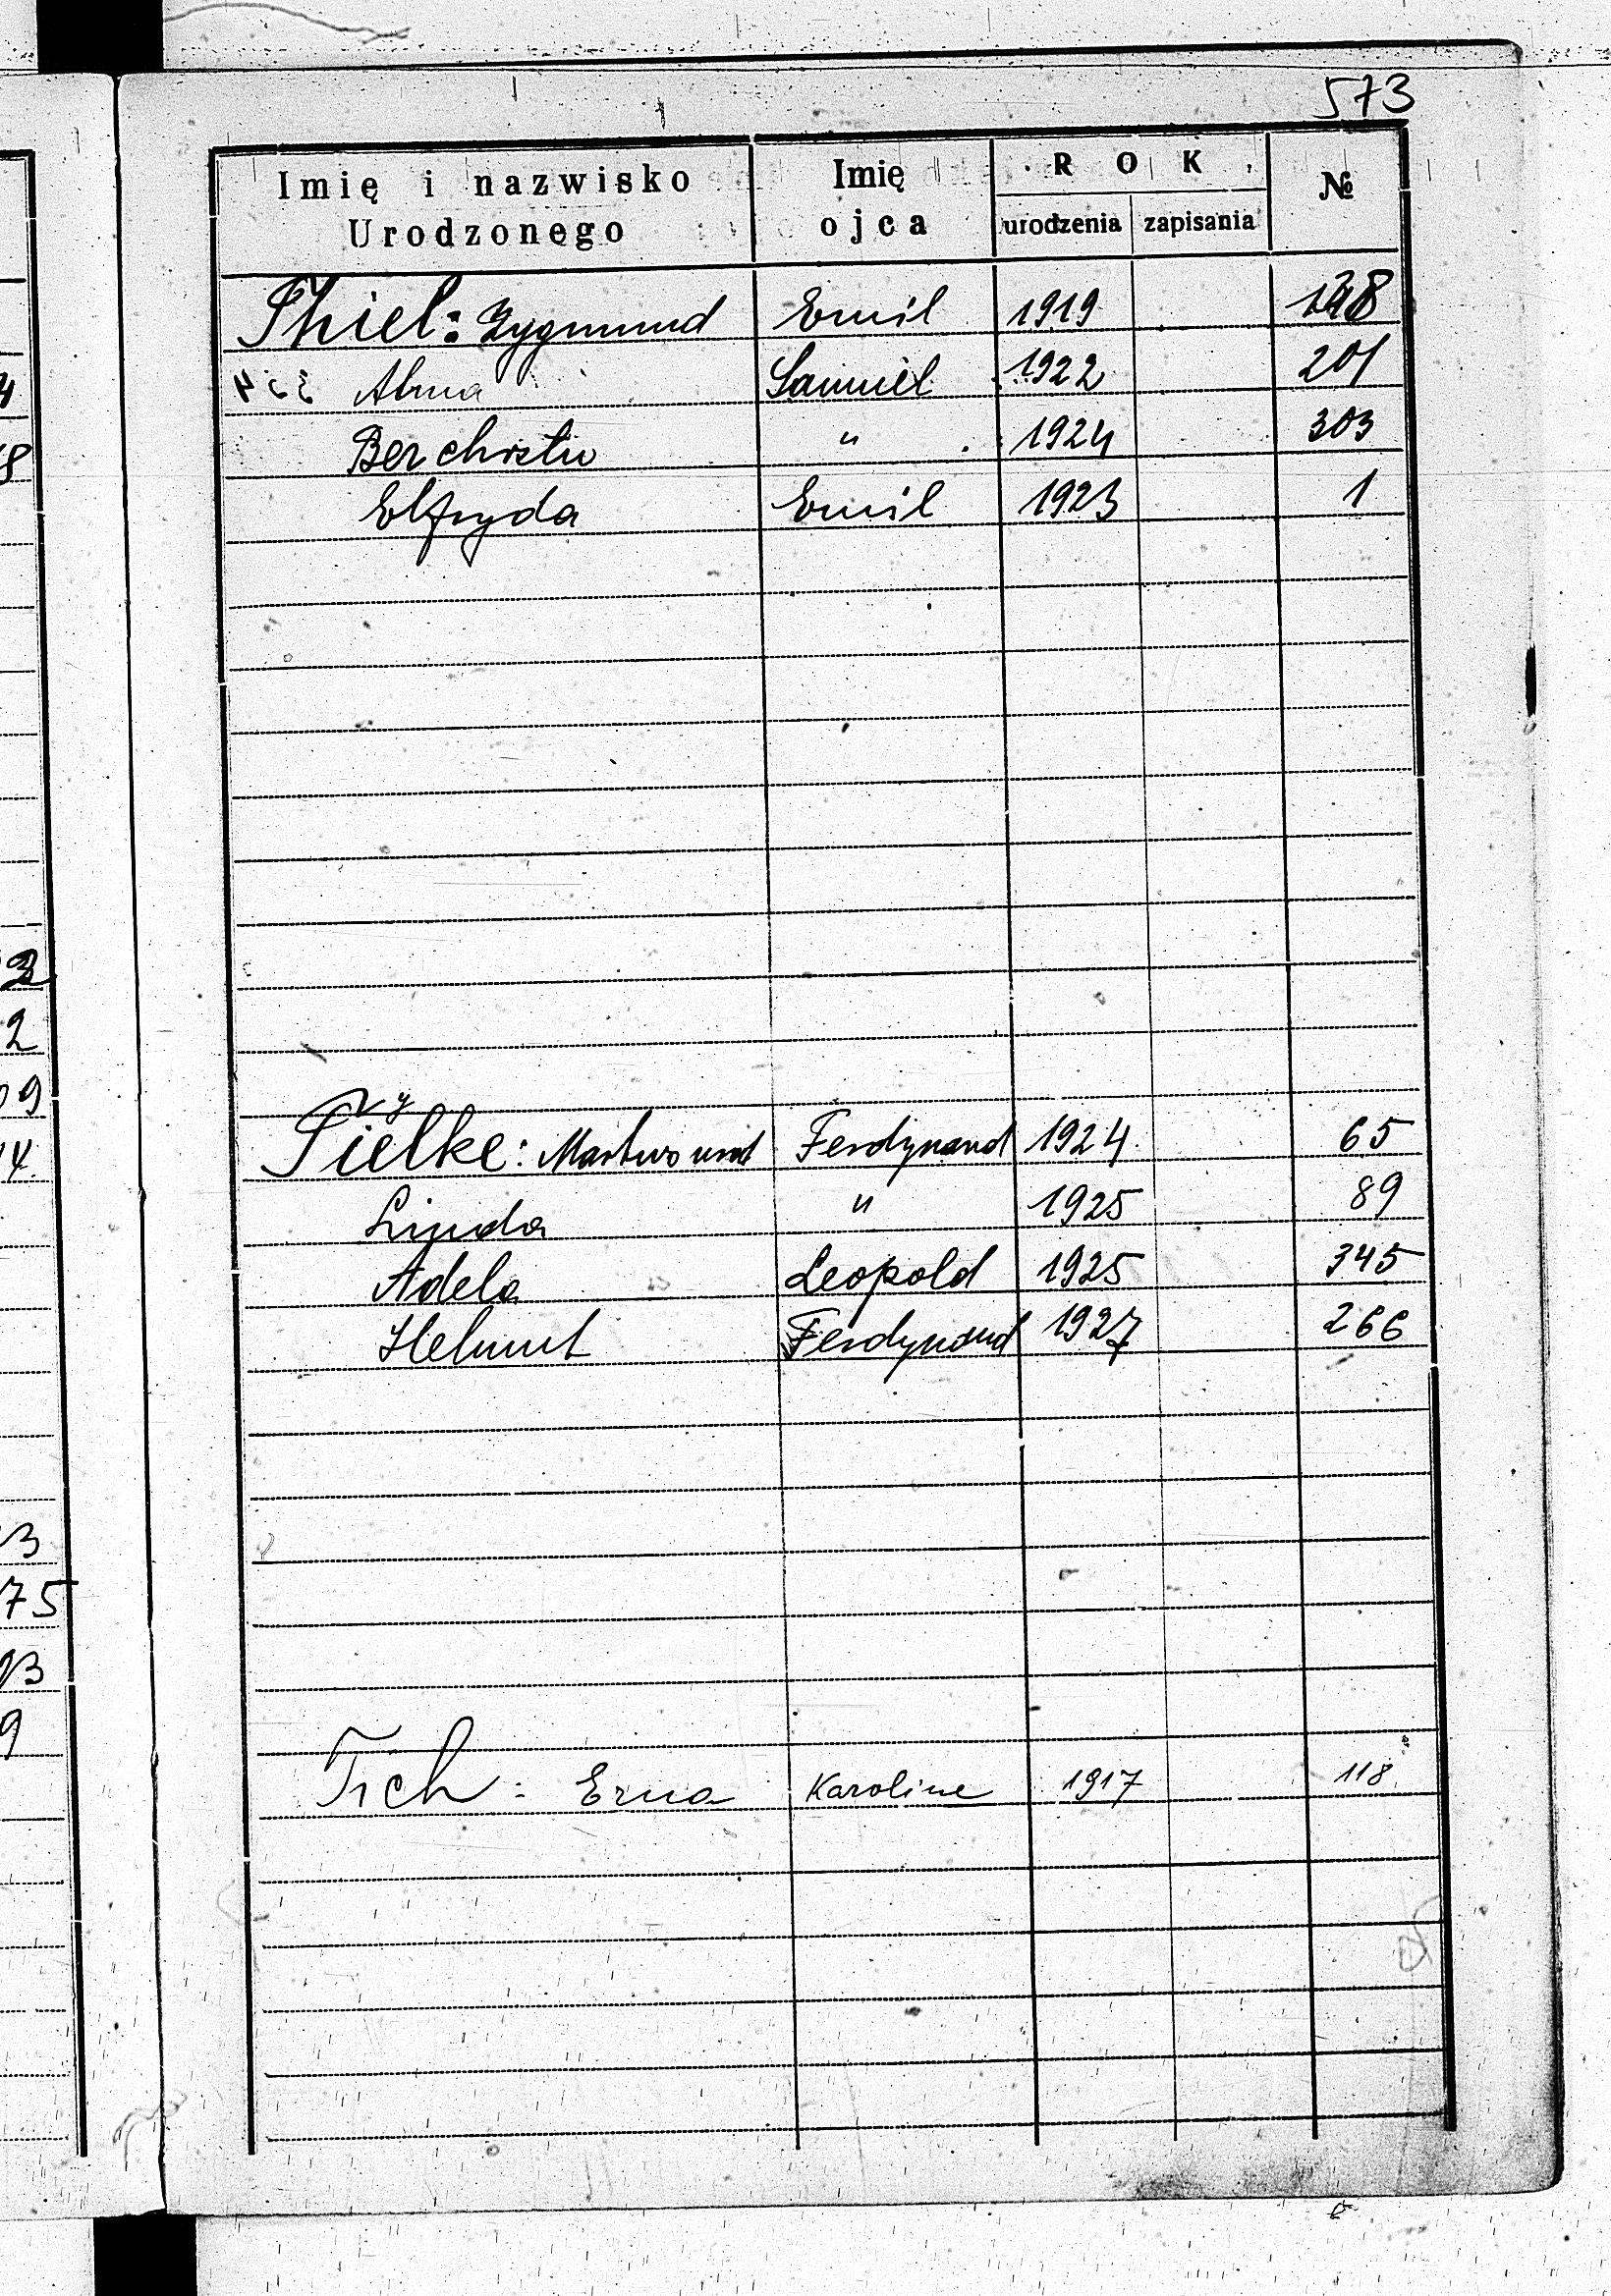 573
Imię i nazwisko Urodzonego | Imię ojca | ROK urodzenia | zapisania | №
Thiel: Zygmund Emil 1919
Alma Samuel 1922 201
Ber christu " 1924 303
Elfryda Emil 1923 1
Tielke: Martwo urod Ferdynand 1924 65
y
Linda " 1925 89
Adela Leopold 1925 345
Helmut Ferdynand 1927 266
Tich: Erna Karoline 1917 118
4
8
2
09
14.
3
75
93
9